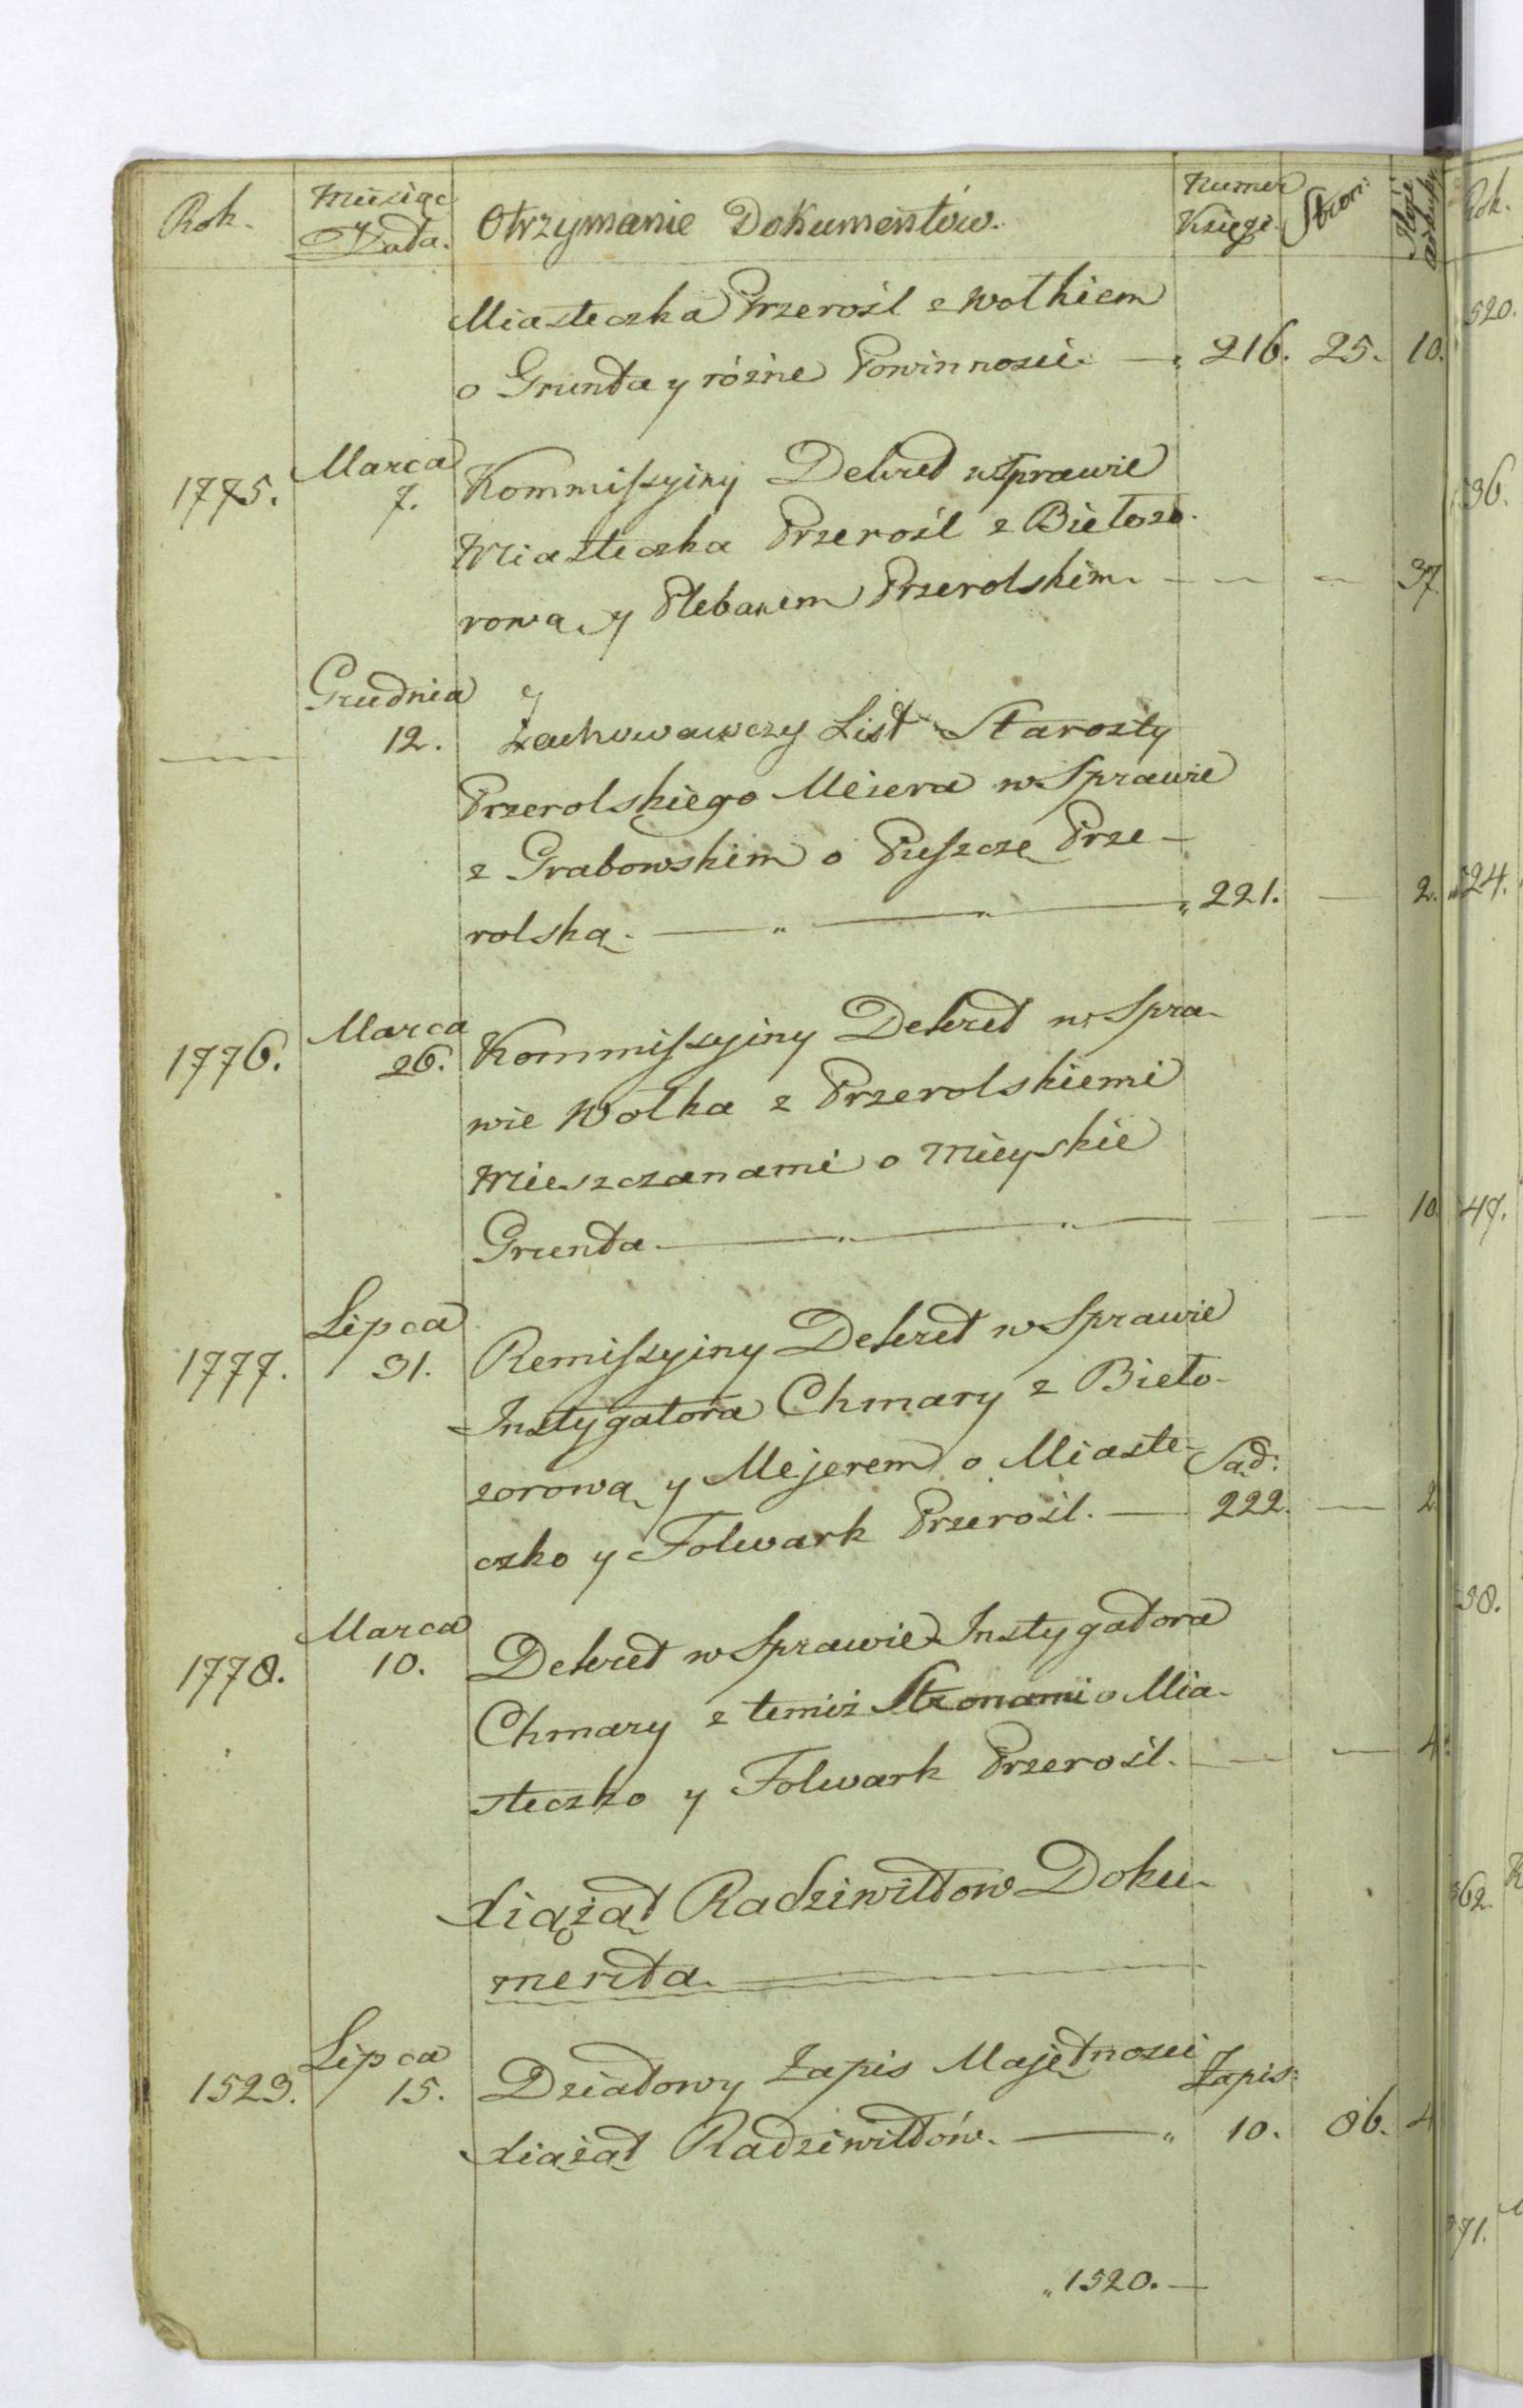 Rok. Miesiąc y Data. Otrzymanie Dokumentów. Numer Księgi. Stron: Rok.
Miasteczka Przerośl z Wołkiem
o Grunta y różne Powinnosci. — 216. 25. 10.
1775. Marca 7. Kommissyiny Dekret w Sprawie
Miasteczka Przerośl z Biełozo-
rową y Plebanem Przerolskim. — — — 37
— Grudnia 12. Zachowawczy List Starosty
Przerolskiego Meiera w Sprawie
z Grabowskim o Puszczę Prze-
rolską. — " — " — 221. — 2.
1776. Marca 26. Kommissyiny Dekret w Spra-
wie Wołka z Przerolskiemi
Mieszczanami o Mieyskie
Grunta. — " — " — — — 10
1777. Lipca 31. Remissyiny Dekret w Sprawie
Instygatora Chmary z Bieło-
zorową y Mejerem o Miaste- Sąd:
czko y Folwark Przerośl. — 222. — 2
1778. Marca 10. Dekret w Sprawie Instygatora
Chmary z temiż Stronami o Mia-
steczko y Folwark Przerośl. — — — 4.
Xiążąt Radziwiłłow Doku-
menta. —
1523. Lipca 15. Działowy Zapis Majętnosci Zapis:
Xiążąt Radziwiłłów. — " 10. 86. 4
" 1520. —